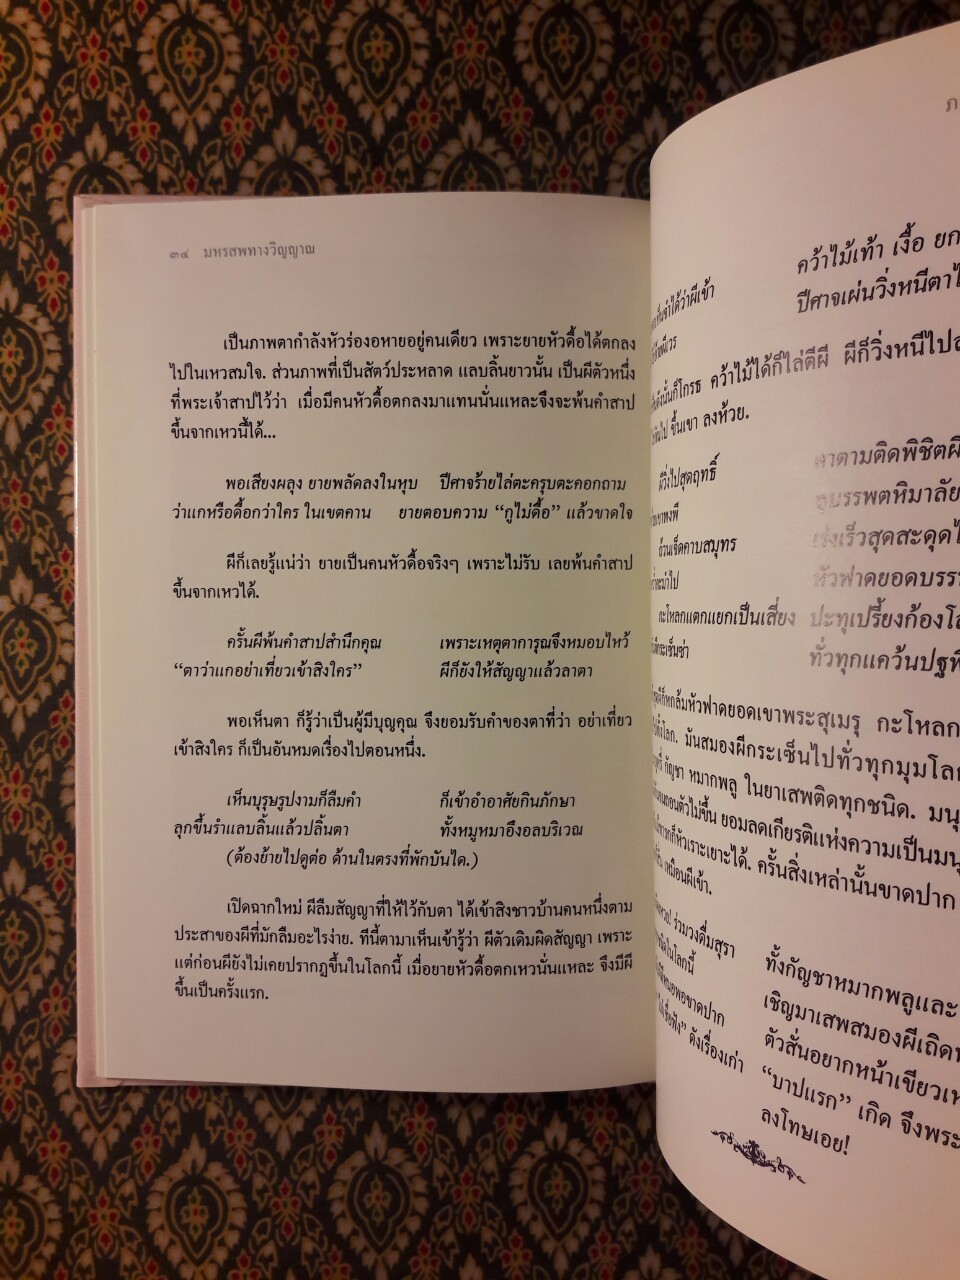 ๓๔ มหรสพทางวิญญาณ
เป็นภาพตากำลังหัวร่องอหายอยู่คนเดียว เพราะยายหัวดื้อได้ตกลง
ไปในเหวสมใจ. ส่วนภาพที่เป็นสัตว์ประหลาด แลบลิ้นยาวนั้น เป็นผีตัวหนึ่ง
ที่พระเจ้าสาปไว้ว่า เมื่อมีคนหัวดื้อตกลงมาแทนนั่นแหละจึงจะพ้นคำสาป
ขึ้นจากเหวนี้ได้...
พอเสียงผลุง ยายพลัดลงในหุบ ปีศาจร้ายไล่ตะครุบตะคอกถาม
ว่าแกหรือดื้อกว่าใคร ในเขตคาม ยายตอบความ “กูไม่ดื้อ” แล้วขาดใจ
ผีก็เลยรู้แน่ว่า ยายเป็นคนหัวดื้อจริงๆ เพราะไม่รับ เลยพ้นคำสาป
ขึ้นจากเหวได้.
ครั้นผีพ้นคำสาปสำนึกคุณ เพราะเหตุตาการุณจึงหมอบไหว้
“ตาว่าแกอย่าเที่ยวเข้าสิงใคร” ผีก็ยังให้สัญญาแล้วลาตา
พอเห็นตา ก็รู้ว่าเป็นผู้มีบุญคุณ จึงยอมรับคำของตาที่ว่า อย่าเที่ยว
เข้าสิงใคร ก็เป็นอันหมดเรื่องไปตอนหนึ่ง.
เห็นบุรุษรูปงามก็ลืมคำ ก็เข้าอำอาศัยกินภักษา
ลุกขึ้นรำแลบลิ้นแล้วปลิ้นตา ทั้งหมูหมาอึงอลบริเวณ
(ต้องย้ายไปดูต่อ ด้านในตรงที่พักบันได.)
เปิดฉากใหม่ ผีลืมสัญญาที่ให้ไว้กับตา ได้เข้าสิงชาวบ้านคนหนึ่งตาม
ประสาของผีที่มักลืมอะไรง่าย. ทีนี้ตามาเห็นเข้ารู้ว่า ผีตัวเดิมผิดสัญญา เพราะ
แต่ก่อนผียังไม่เคยปรากฏขึ้นในโลกนี้ เมื่อยายหัวดื้อตกเหวนั่นแหละ จึงมีผี
ขึ้นเป็นครั้งแรก.
คว้าไม้เท้า เงื้อ
จำได้ว่าผีเข้า ปีศาจเผ่นวิ่งหนี
ดังนั้นก็โกรธ คว้าไม้ได้ก็ไล่ตีผี ผีก็วิ่งหนีไป
ขึ้นเขา ลงห้วย.
ผีวิ่งไปสุดฤทธิ์ ตาตามติดพิชิต
บรรพตหิมาลัย
ล้วนเจ็ดคาบสมุทร เร็วสุดสะดุด
หัวฟาดยอด
กะโหลกแตกแยกเป็นเสี่ยง ปะทุเปรี้ยงก้อง
ทั่วทุกแคว้น
ผีก็หกล้มหัวฟาดยอดเขาพระสุเมรุ กะโหลก
โลก. มันสมองผีกระเซ็นไปทั่วทุกมุมโลก
กัญชา หมากพลู ในยาเสพติดทุกชนิด.
ถอนตัวไม่ขึ้น ยอมลดเกียรติแห่งความเป็น
ก็หัวเราะเยาะได้. ครั้นสิ่งเหล่านั้นขาดปาก
เหมือนผีเข้า.
ร่วมวงดื่มสุรา ทั้งกัญชาหมากพลูและ
ในโลกนี้ เชิญมาเสพสมองผีเถิด
พอขาดปาก ตัวสั่นอยากหน้าเขียว
ดังเรื่องเก่า “บาปแรก” เกิด จึงพระ
ลงโทษเอย!